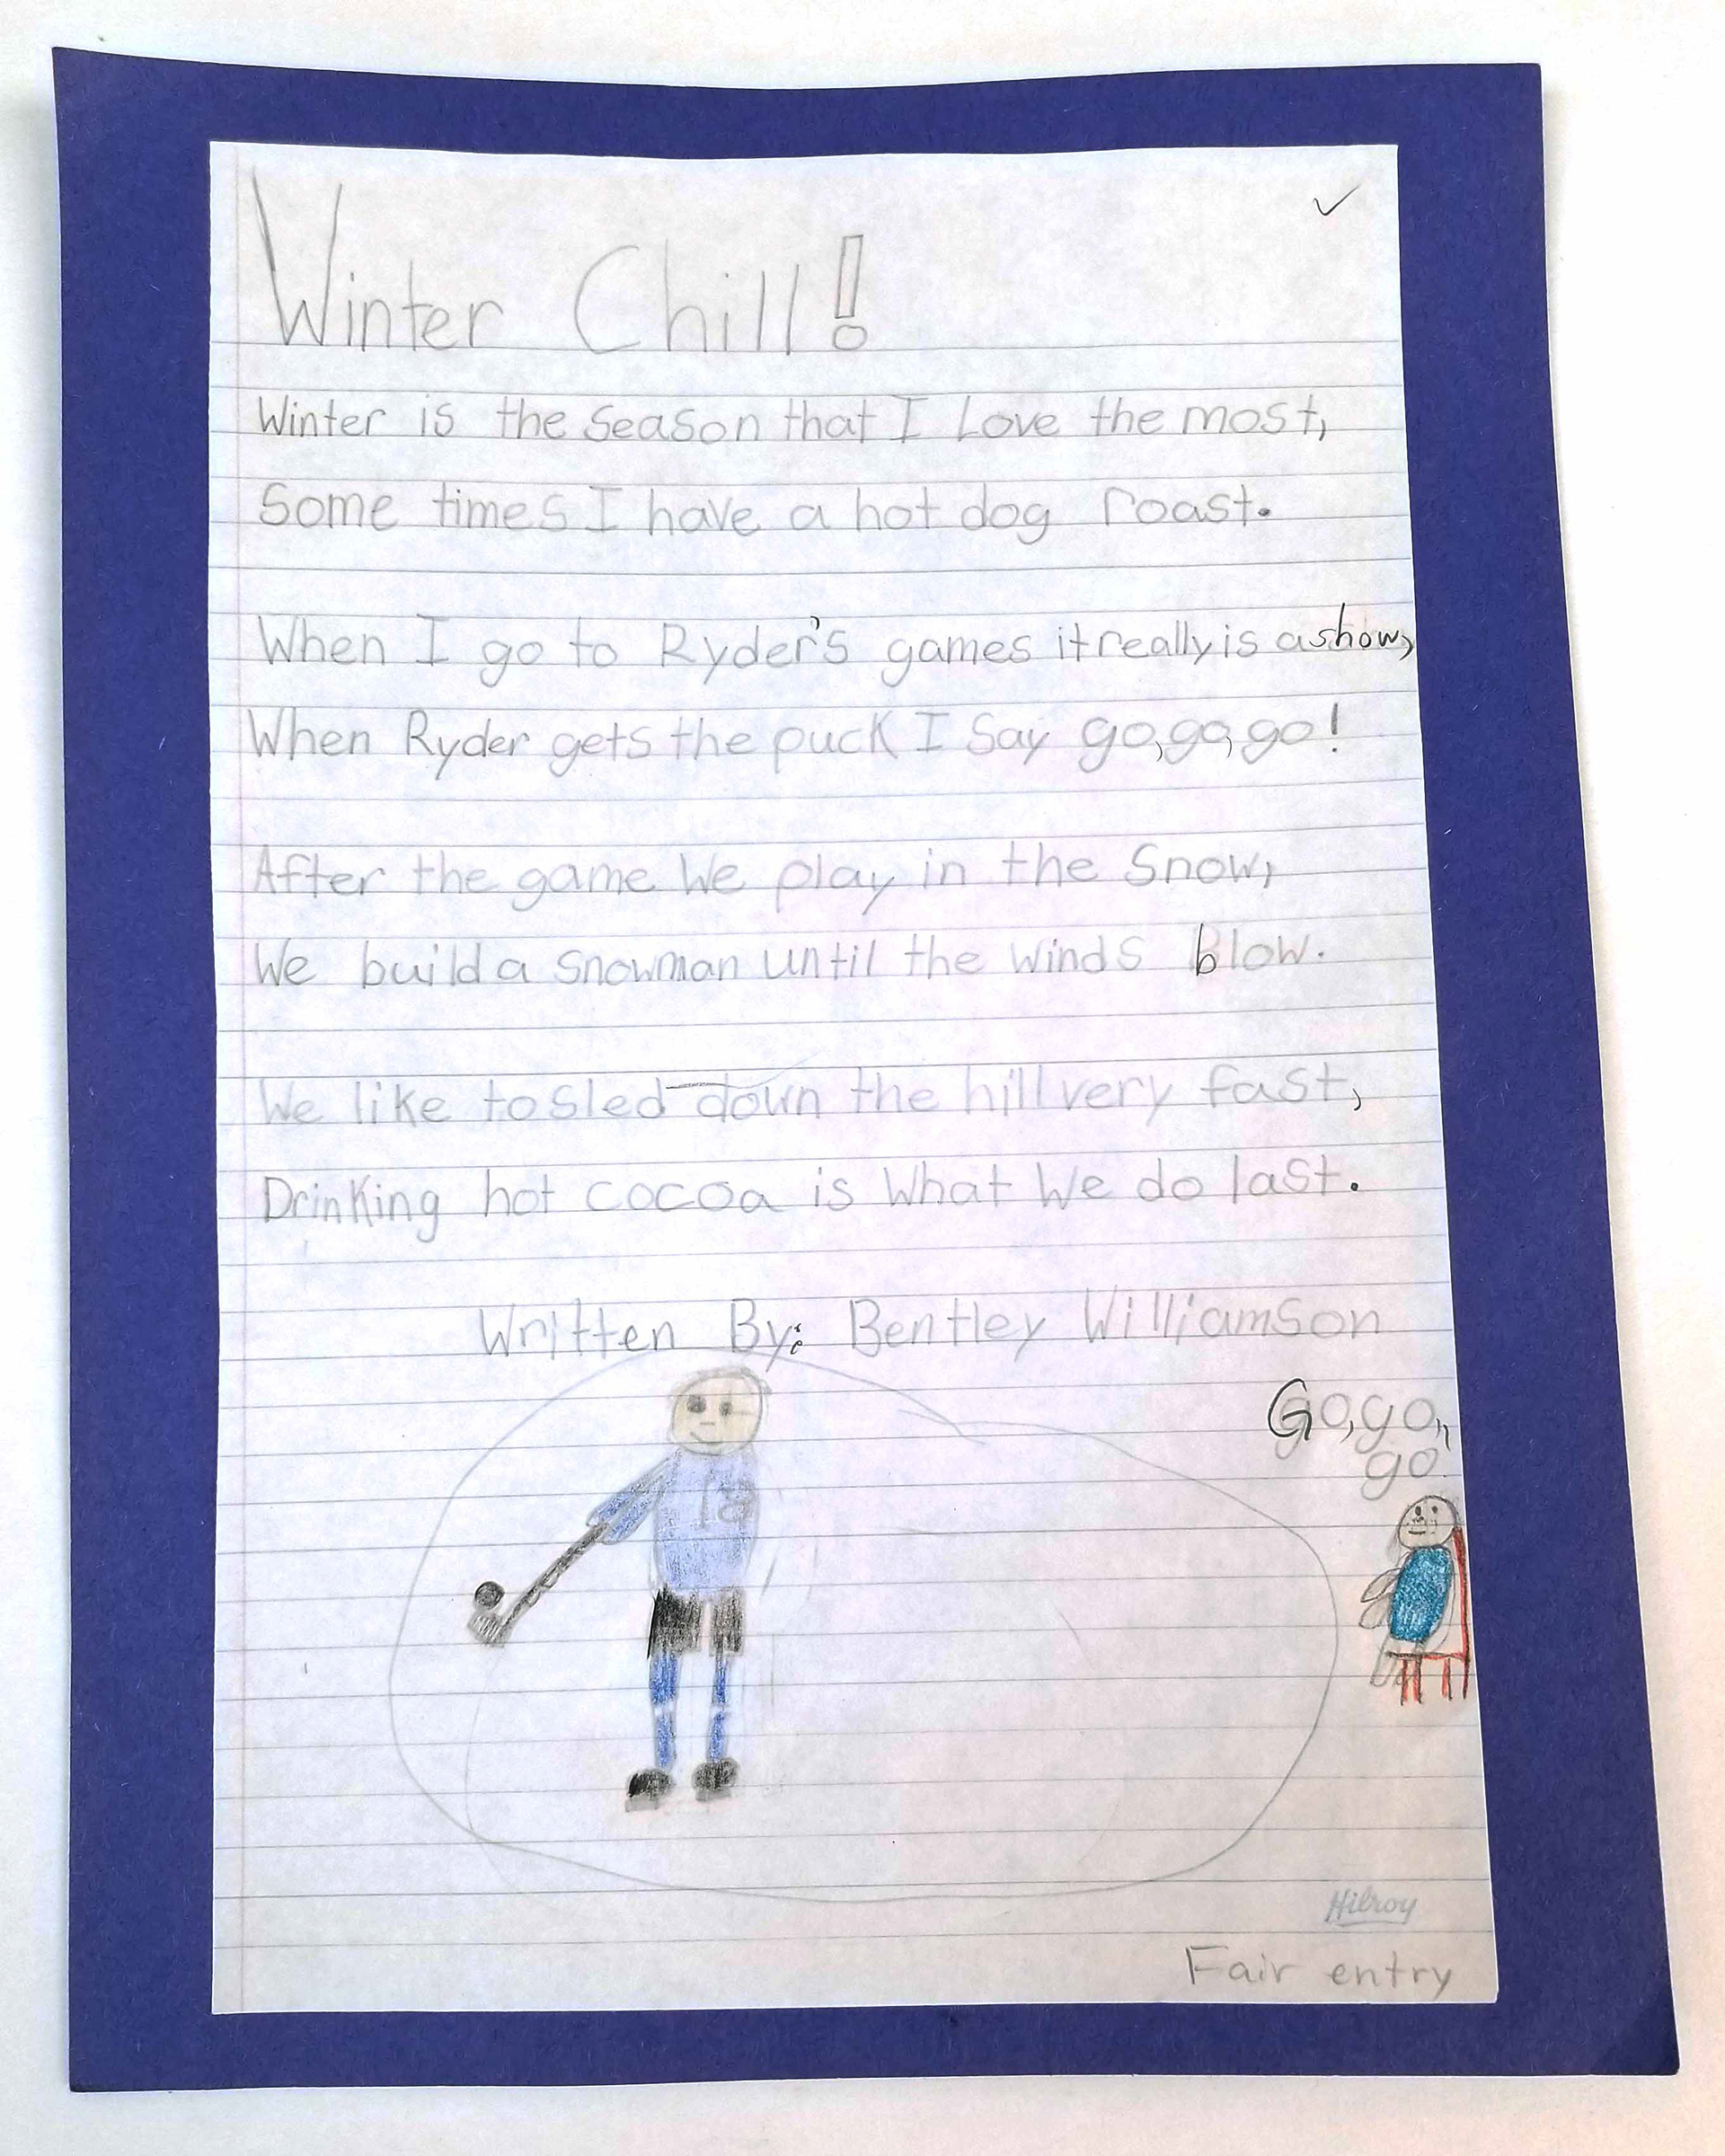 ✓
Winter Chill!
Winter is the season that I Love the most,
Some times I have a hot dog roast.
When I go to Ryder's games it really is a show,
When Ryder gets the puck I Say go, go, go!
After the game We play in the Snow,
We build a snowman until the winds blow.
We like to sled down the hill very fast,
Drinking hot cocoa is What We do last.
Written By: Bentley Williamson
Go, go,
go
Hilroy
Fair entry